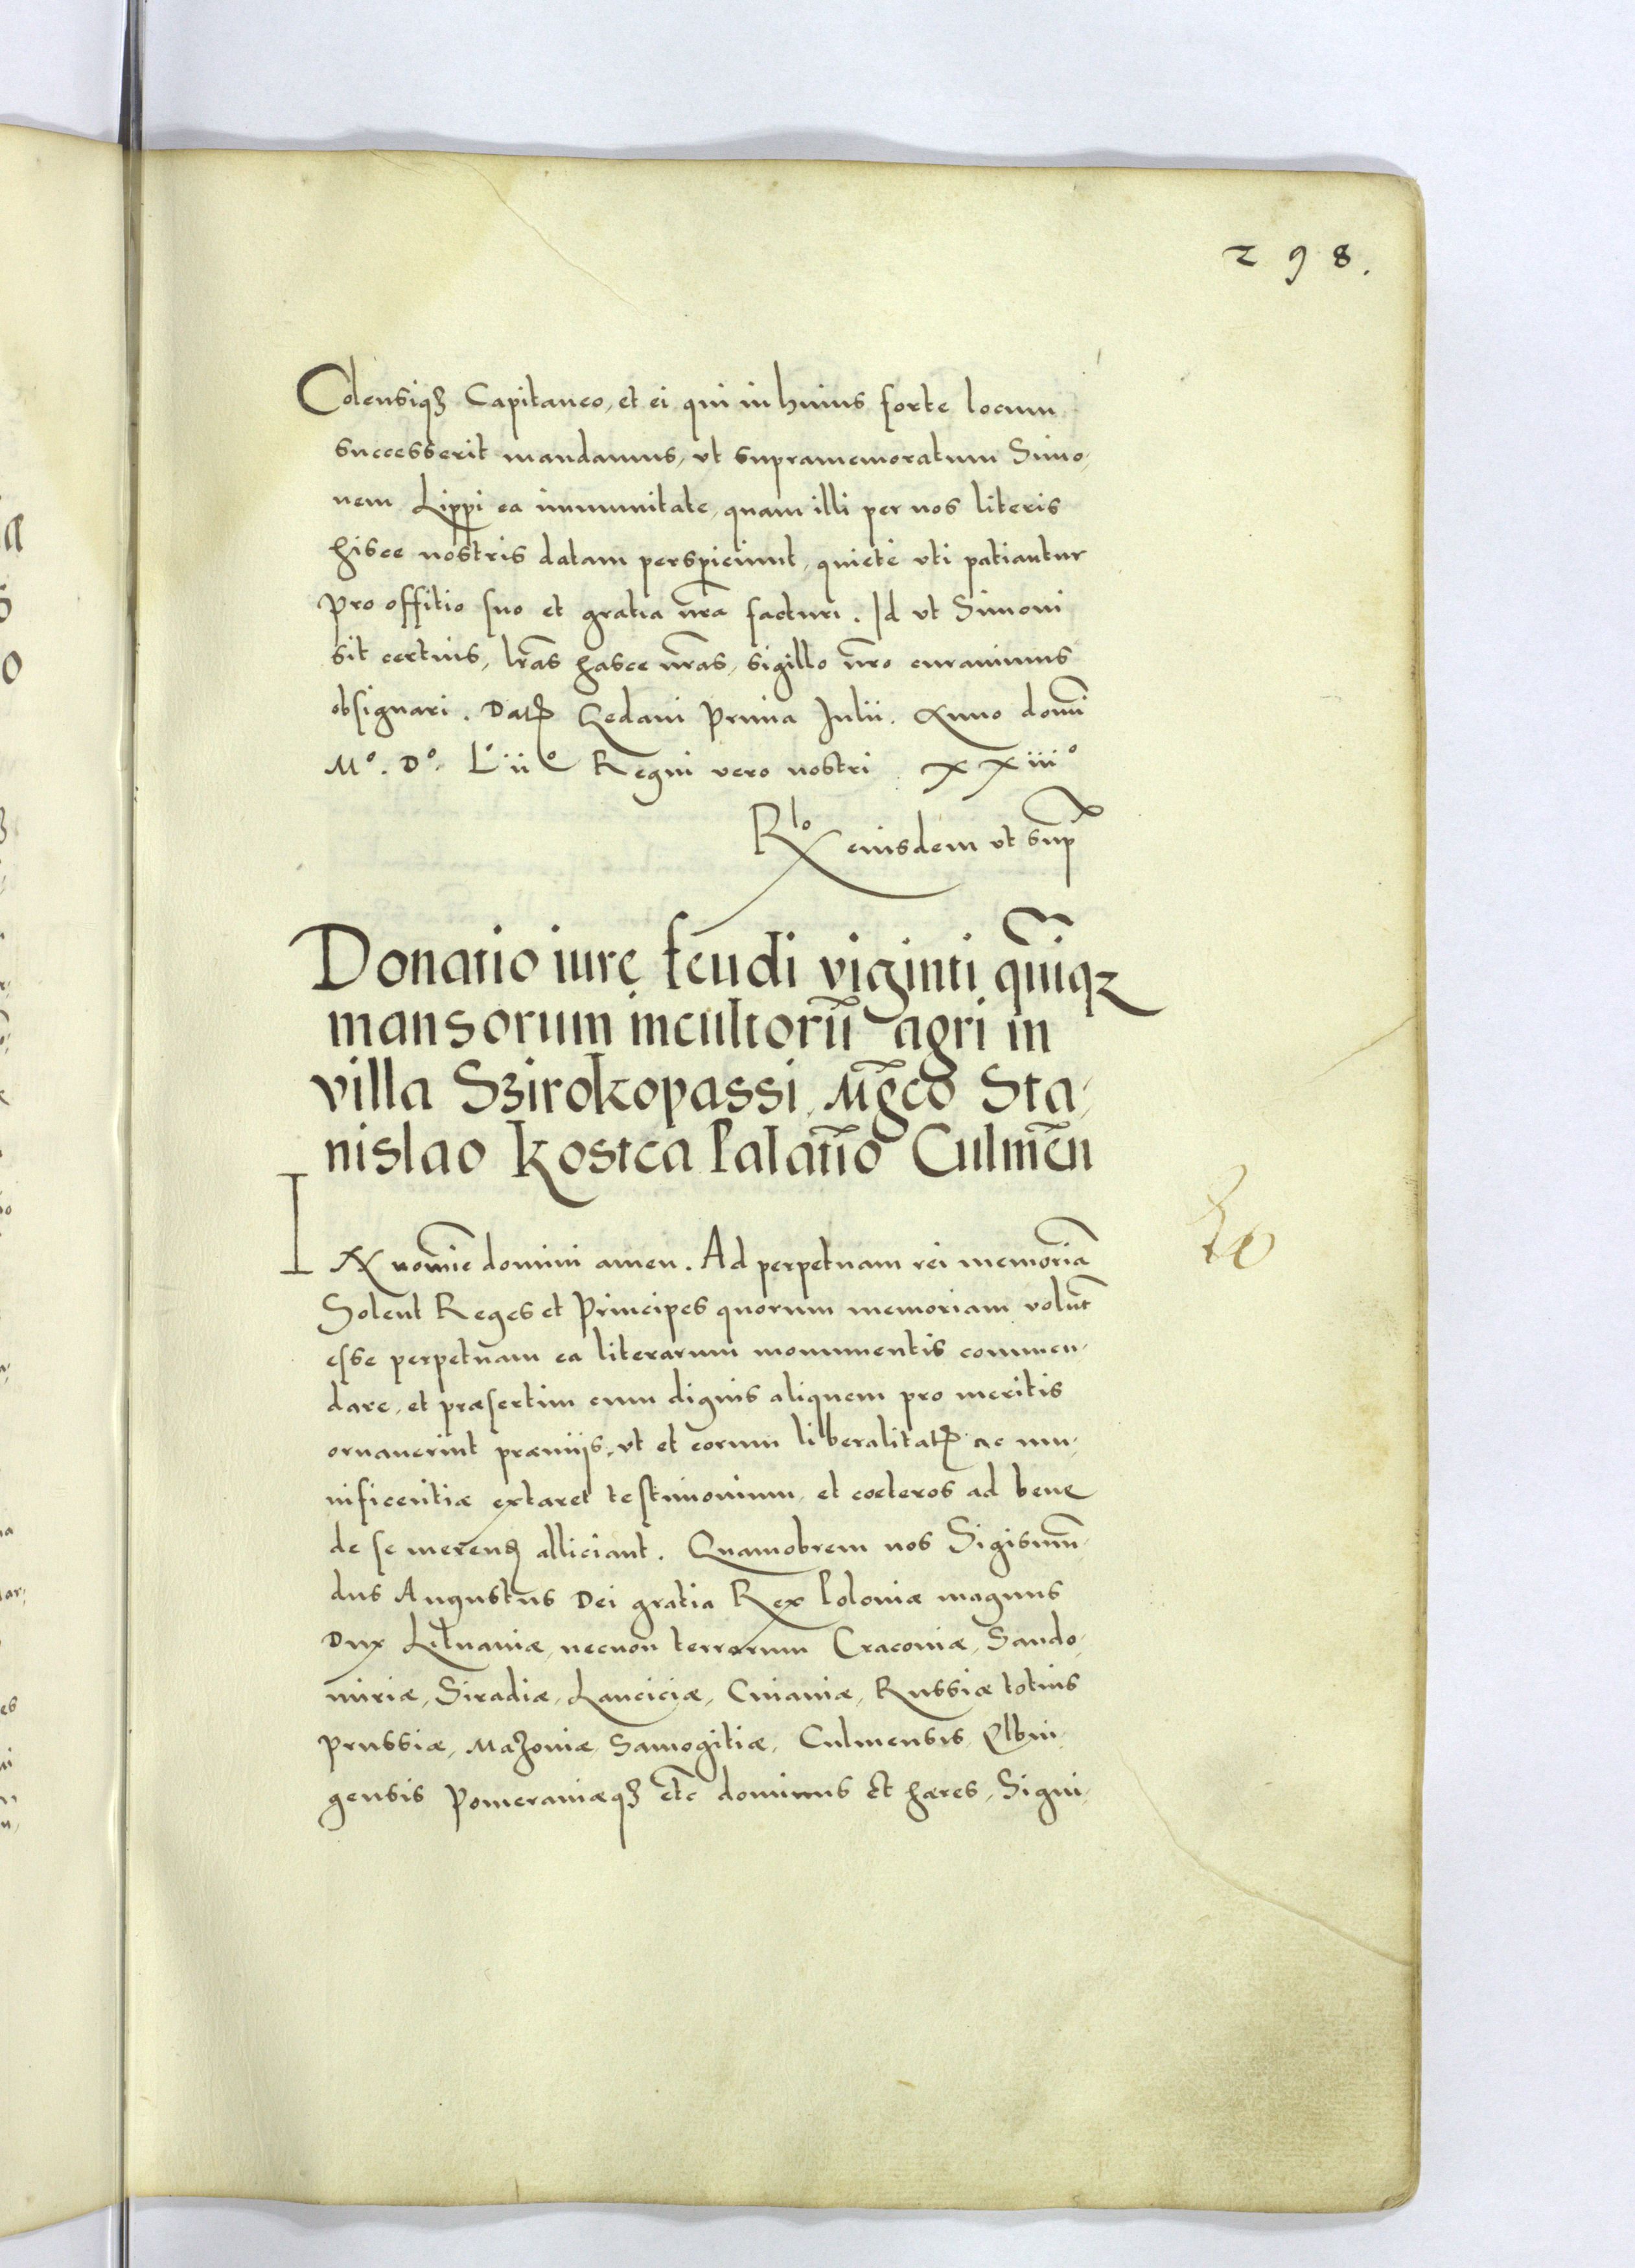 298.
Colensiqȝ Capitaneo, et ei qui in huius forte locum
successerit mandamus, vt supramemoratum Simo,
nem Lippi ea immunitate, quam illi per nos literis
hisce nostris datam perspiciunt, quietè vti patiantur
pro offitio suo et gratia nr̄a facturi. Id vt Simoni
sit certius, lr̄as hasce nr̄as, sigillo nr̄o curauimus
obsignari. Datꝭ Gedani prima Julii. Anno domī
Mº. Dº. Lº iiº Regni vero nostri xxiiiº
Rlo eiusdem vt supᷓ
Donatio iure feudi viginti quīqꝫ
mansorum incultorū agri in
villa Szirokopassi, Mgc̄o Sta,
nislao Kostca Palatīo Culmēn
IN nomīe domini amen. Ad perpetuam rei memoriā
Solent Reges et Principes quorum memoriam volūt
esse perpetuam ea literarum monumentis commen,
dare, et præsertim cum dignis aliquem pro meritis
ornauerint præmijs, vt et eorum liberalitatꝭ ac mu,
nificentiæ extaret testimonium, et cœteros ad bene
de se merenꝺ alliciant. Quamobrem nos Sigismū,
dus Augustus Dei gratia Rex Poloniæ magnus
Dux Lituaniæ, necnon terrarum Cracoviæ, Sando,
miriæ, Siradiæ, Lanciciæ, Cuiaviæ, Russiæ totius
Prussiæ, Mazoviæ, Samogitiæ, Culmensis, Elbin,
gensis Pomeraniæqȝ etc̄ dominus et hæres, Signi,